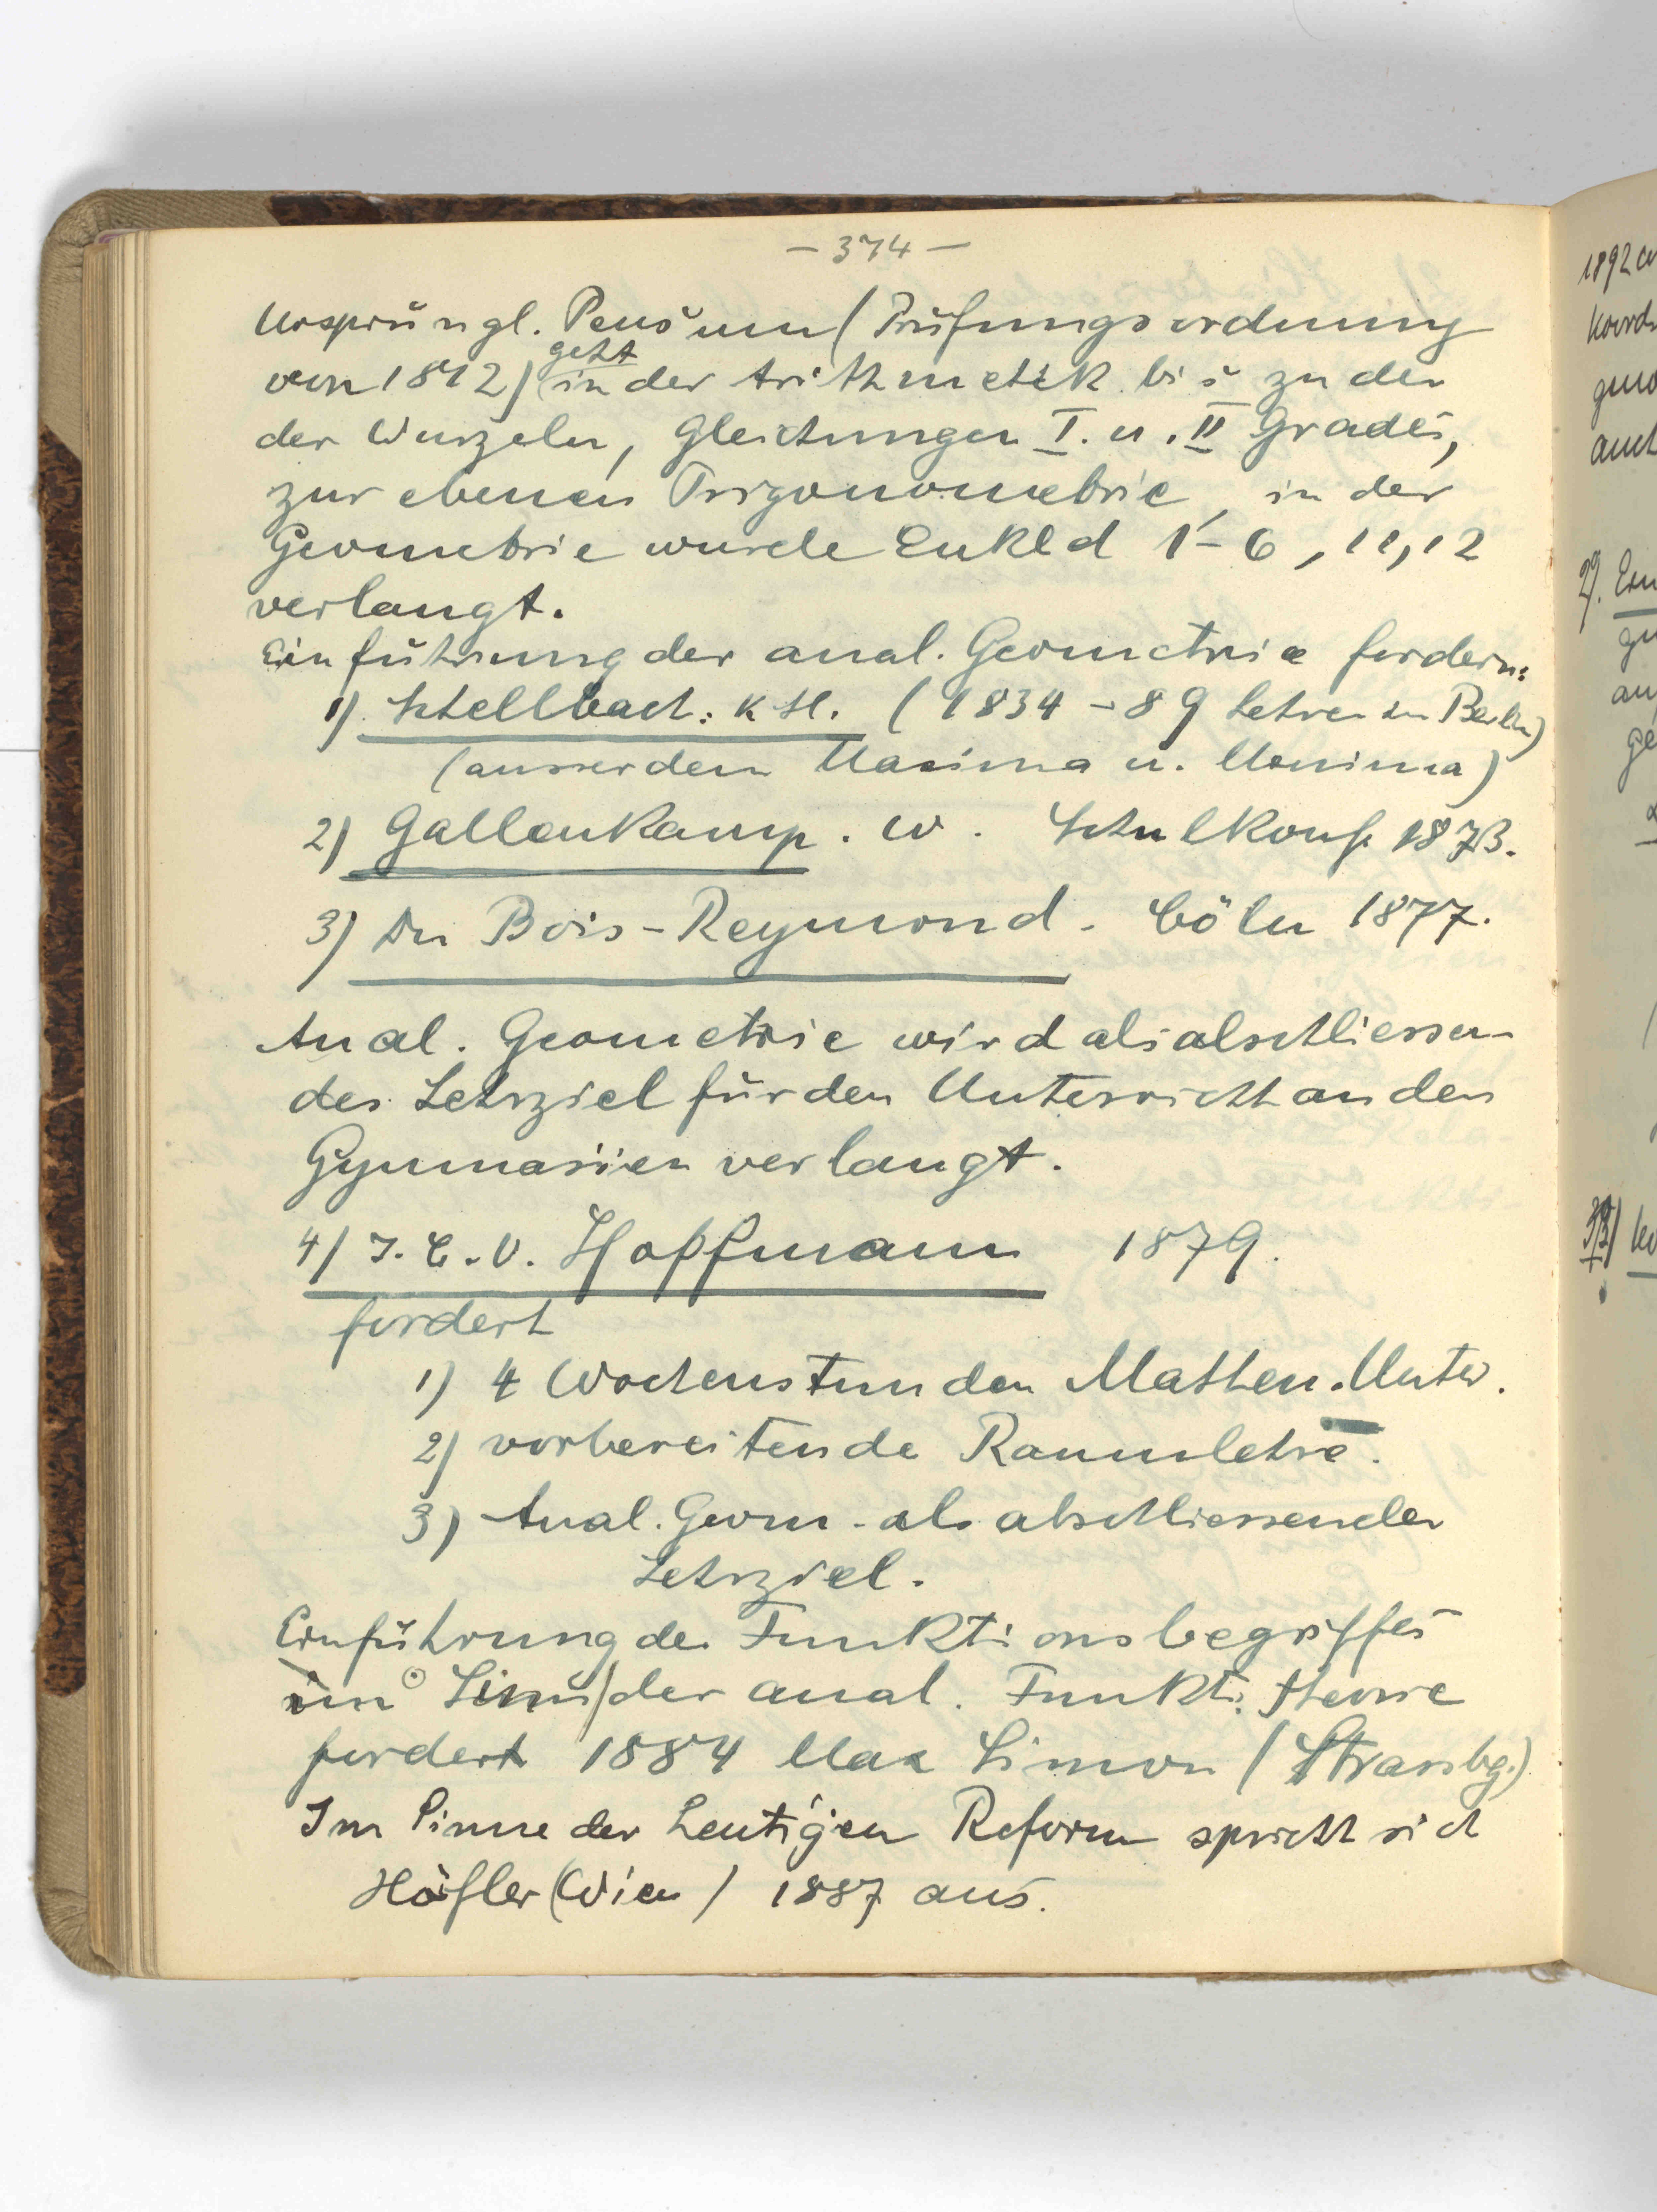 — 374 —
Ursprüngl. Pensum (Prüfungsordnung
geht
von 1812) in der Arithmetik bis zu den
der Wurzeln, Gleichungen I. u. II Grades,
zur ebenen Trigonometrie, in der
Geometrie wurde Eukld 1-6, 11, 12
verlangt.
Einführung der anal. Geometrie fordern:
1) Schellbach: K H. (1834-89 Lehrer in Berlin)
(ausserdem Maxima u. Minima)
2) Gallenkamp. W. Schulkonf. 1873.
3) Du Bois-Reymond. Cöln 1877.
Anal. Geometrie wird als abschliessen-
des Lehrziel für den Unterricht an den
Gymnasien verlangt.
4) J. C. V. Hoffmann 1879.
fordert
1) 4 Wochenstunden Mathem. Unter.
2) vorbereitende Raumlehre.
3) Anal. Geom. als abschliessendes
Lehrziel.
Einführung des Funktionsbegriffes
im Sinn der anal. Funkt. theorie
fordert 1884 Max Simon (Strassbg.)
Im Sinne der heutigen Reform spricht sich
Höfler (Wien) 1887 aus.
1892
2).